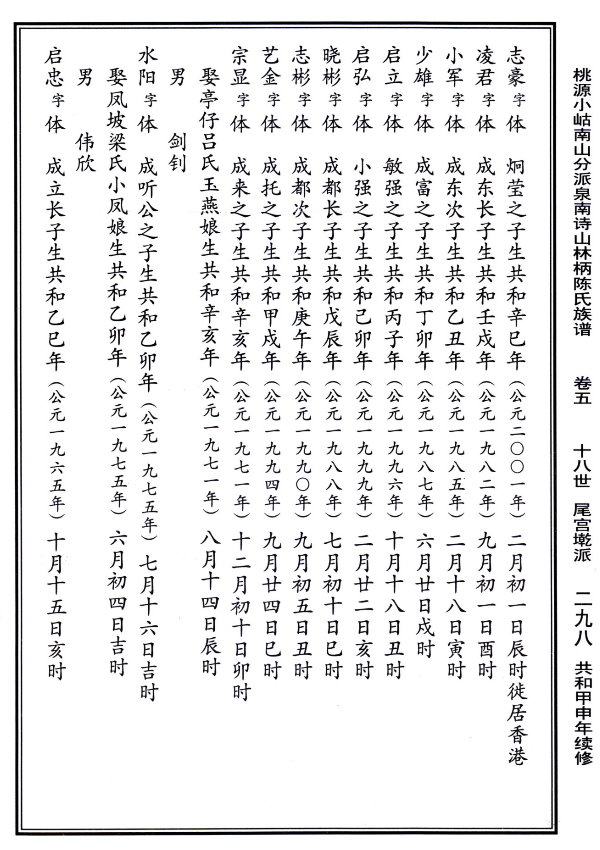 桃源小岵南山分派泉南诗山林柄陈氏族谱 卷五 十八世 尾宫墘派 二九八 共和甲申年续修
志豪字体 炯莹之子生共和辛巳年（公元二〇〇一年）二月初一日辰时徙居香港
凌君字体 成东长子生共和壬戌年（公元一九八二年）九月初一日酉时
小军字体 成东次子生共和乙丑年（公元一九八五年）二月十八日寅时
少雄字体 成富之子生共和丁卯年（公元一九八七年）六月廿日戌时
启立字体 敏强之子生共和丙子年（公元一九九六年）十月十八日丑时
启弘字体 小强之子生共和己卯年（公元一九九九年）二月廿二日亥时
晓彬字体 成都长子生共和戊辰年（公元一九八八年）七月初十日巳时
志彬字体 成都次子生共和庚午年（公元一九九〇年）九月初五日丑时
艺金字体 成托之子生共和甲戌年（公元一九九四年）九月廿四日巳时
宗显字体 成来之子生共和辛亥年（公元一九七一年）十二月初十日卯时
娶亭仔吕氏玉燕娘生共和辛亥年（公元一九七一年）八月十四日辰时
男 剑钊
水阳字体 成听公之子生共和乙卯年（公元一九七五年）七月十六日吉时
娶凤坡梁氏小凤娘生共和乙卯年（公元一九七五年）六月初四日吉时
男 伟欣
启忠字体 成立长子生共和乙巳年（公元一九六五年）十月十五日亥时